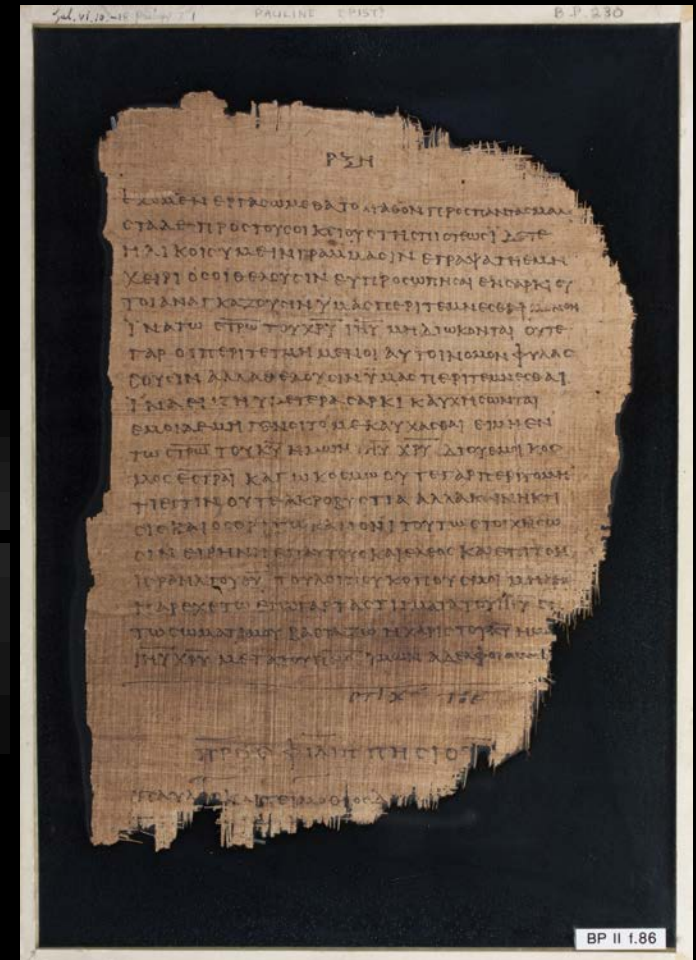 Gal. VI, 10-18 Philipp. I, 1 PAULINE B.P. 230
ΡΞΗ
ΕΧΟΜΕΝ ΕΡΓΑϹΩΜΕΘΑ ΤΟ ΑΓΑΘΟΝ ΠΡΟϹ ΠΑΝΤΑϹ ΜΑΛΙ
ϹΤΑ ΔΕ ΠΡΟϹ ΤΟΥϹ ΟΙΚΕΙΟΥϹ ΤΗϹ ΠΙϹΤΕΩϹ ΙΔΕΤΕ
ΗΛΙΚΟΙϹ ΥΜΕΙΝ ΓΡΑΜΜΑϹΙΝ ΕΓΡΑΨΑ ΤΗ ΕΜΗ
ΧΕΙΡΙ ΟϹΟΙ ΘΕΛΟΥϹΙΝ ΕΥΠΡΟϹΩΠΗϹΑΙ ΕΝ ϹΑΡΚΙ ΟΥ
ΤΟΙ ΑΝΑΓΚΑΖΟΥϹΙΝ ΥΜΑϹ ΠΕΡΙΤΕΜΝΕϹΘΑΙ ΜΟΝΟΝ
ΙΝΑ ΤΩ ϹΤΡΩ ΤΟΥ ΧΡΥ ΙΗΥ ΜΗ ΔΙΩΚΟΝΤΑΙ ΟΥΤΕ
ΓΑΡ ΟΙ ΠΕΡΙΤΕΤΜΗΜΕΝΟΙ ΑΥΤΟΙ ΝΟΜΟΝ ΦΥΛΑϹ
ϹΟΥϹΙΝ ΑΛΛΑ ΘΕΛΟΥϹΙΝ ΥΜΑϹ ΠΕΡΙΤΕΜΝΕϹΘΑΙ
ΙΝΑ ΕΝ ΤΗ ΥΜΕΤΕΡΑ ϹΑΡΚΙ ΚΑΥΧΗϹΩΝΤΑΙ
ΕΜΟΙ ΔΕ ΜΗ ΓΕΝΟΙΤΟ ΜΕ ΚΑΥΧΑϹΘΑΙ ΕΙ ΜΗ ΕΝ
ΤΩ ϹΤΡΩ ΤΟΥ ΚΥ ΗΜΩΝ ΙΗΥ ΧΡΥ ΔΙ ΟΥ ΕΜΟΙ ΚΟϹ
ΜΟϹ ΕϹΤΡΑΙ ΚΑΓΩ ΚΟϹΜΩ ΟΥΤΕ ΓΑΡ ΠΕΡΙΤΟΜΗ
ΤΙ ΕϹΤΙΝ ΟΥΤΕ ΑΚΡΟΒΥϹΤΙΑ ΑΛΛΑ ΚΑΙΝΗ ΚΤΙ
ϹΙϹ ΚΑΙ ΟϹΟΙ ΤΩ ΚΑΝΟΝΙ ΤΟΥΤΩ ϹΤΟΙΧΗϹΩ
ϹΙΝ ΕΙΡΗΝΗ ΕΠ ΑΥΤΟΥϹ ΚΑΙ ΕΛΕΟϹ ΚΑΙ ΕΠΙ ΤΟΝ
ΙϹΡΑΗΛ ΤΟΥ ΘΥ ΤΟΥ ΛΟΙΠΟΥ ΚΟΠΟΥϹ ΜΟΙ ΜΗΔΕΙϹ
ΠΑΡΕΧΕΤΩ ΕΓΩ ΓΑΡ ΤΑ ϹΤΙΓΜΑΤΑ ΤΟΥ ΙΗΥ ΕΝ
ΤΩ ϹΩΜΑΤΙ ΜΟΥ ΒΑϹΤΑΖΩ Η ΧΑΡΙϹ ΤΟΥ ΚΥ ΗΜΩ
ΙΗΥ ΧΡΥ ΜΕΤΑ ΤΟΥ ΠΝϹ ΥΜΩΝ ΑΔΕΛΦΟΙ ΑΜΗ
ϹΤΙΧ ΤΟΕ
ΠΡΟϹ ΦΙΛΙΠΠΗϹΙΟΥϹ
ΠΑΥΛΟϹ ΚΑΙ ΤΕΙΜΟΘΕΟϹ
BP II f.86